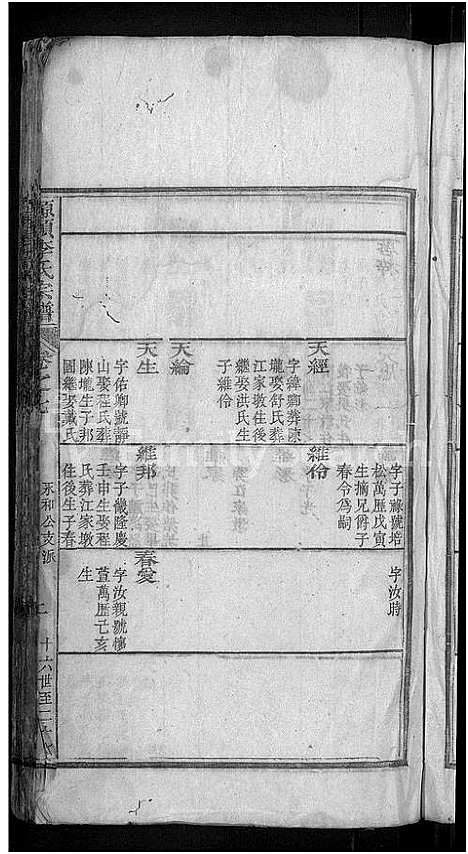 天經
字緯卿葬陳
壠娶舒氏葬
江家墩住後
繼娶洪氏生
子維伶
天綸
天生
字佑卿號靜
山娶程氏葬
陳壠生子邦
國繼娶戴氏
維伶
字子蔴號培
松萬歷戊寅
生摘兄爵子
春令爲嗣
維邦
字子畿隆慶
壬申生娶程
氏葬江家墩
住後生子春
字汝時
春爱
字汝親號懷
萱萬厯乙亥
生
李氏宗譜
卷之七
永和公支派
十六世至二十